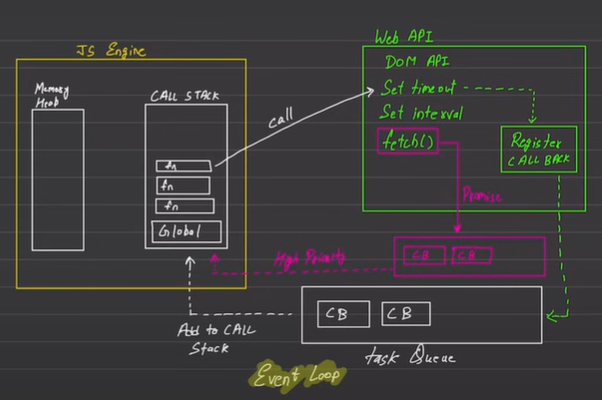 JS Engine
Memory
Heap
CALL STACK
fn
fn
fn
Global
call
Web API
DOM API
Set timeout
Set interval
fetch()
Register
CALL BACK
Promise
CB CB
High Priority
CB CB
task Queue
Add to CALL
Stack
Event Loop